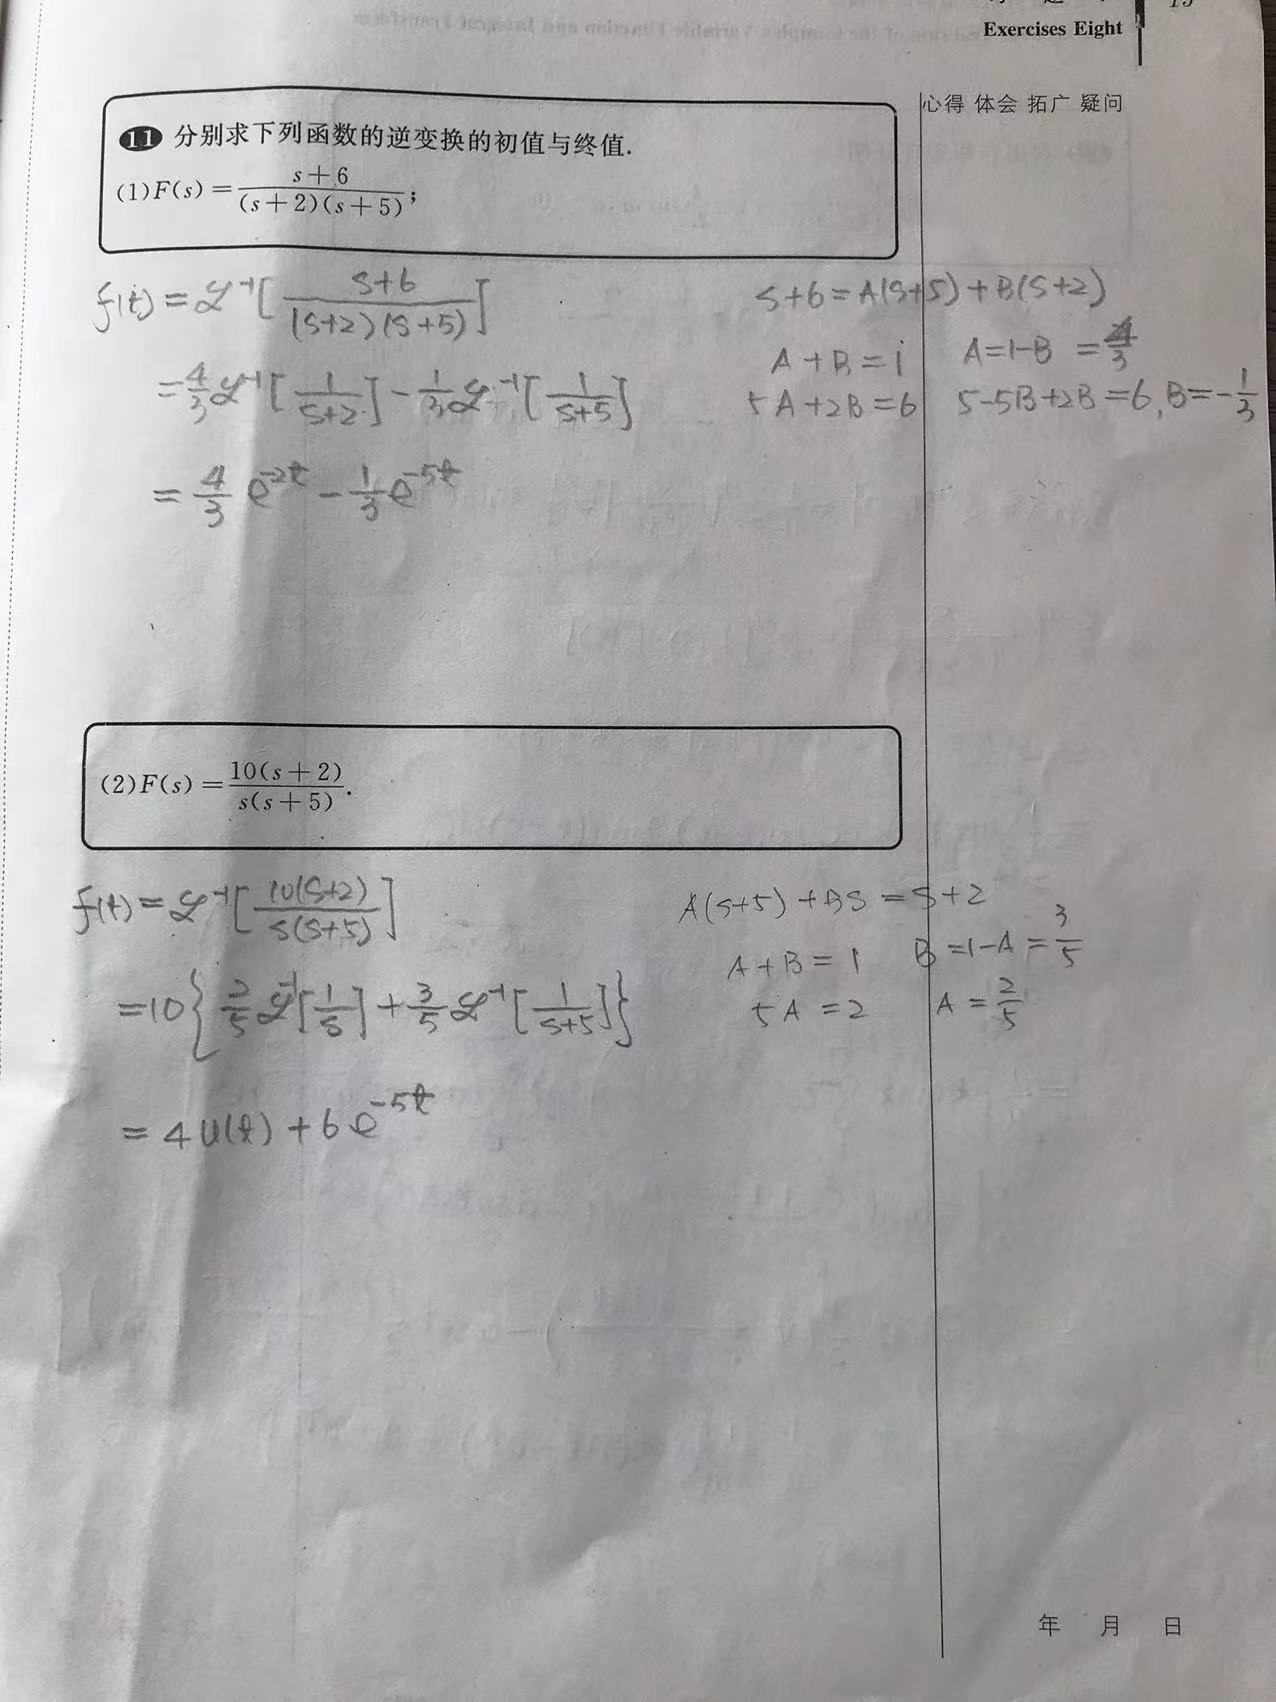 Exercises Eight
心得 体会 拓广 疑问
11 分别求下列函数的逆变换的初值与终值.
(1)F(s)=\frac{s+6}{(s+2)(s+5)};
f(t)=ℒ⁻¹[\frac{s+6}{(s+2)(s+5)}]
=\frac{4}{3}ℒ⁻¹[\frac{1}{s+2}]-\frac{1}{3}ℒ⁻¹[\frac{1}{s+5}]
=\frac{4}{3}e^{-2t}-\frac{1}{3}e^{-5t}
s+6=A(s+5)+B(s+2)
A+B=1 A=1-B=\frac{4}{3}
5A+2B=6 5-5B+2B=6, B=-\frac{1}{3}
(2)F(s)=\frac{10(s+2)}{s(s+5)}.
f(t)=ℒ⁻¹[\frac{10(s+2)}{s(s+5)}]
=10{\frac{2}{5}ℒ⁻¹[\frac{1}{s}]+\frac{3}{5}ℒ⁻¹[\frac{1}{s+5}]}
=4u(t)+6e^{-5t}
A(s+5)+BS=s+2
A+B=1 B=1-A=\frac{3}{5}
5A=2 A=\frac{2}{5}
年 月 日